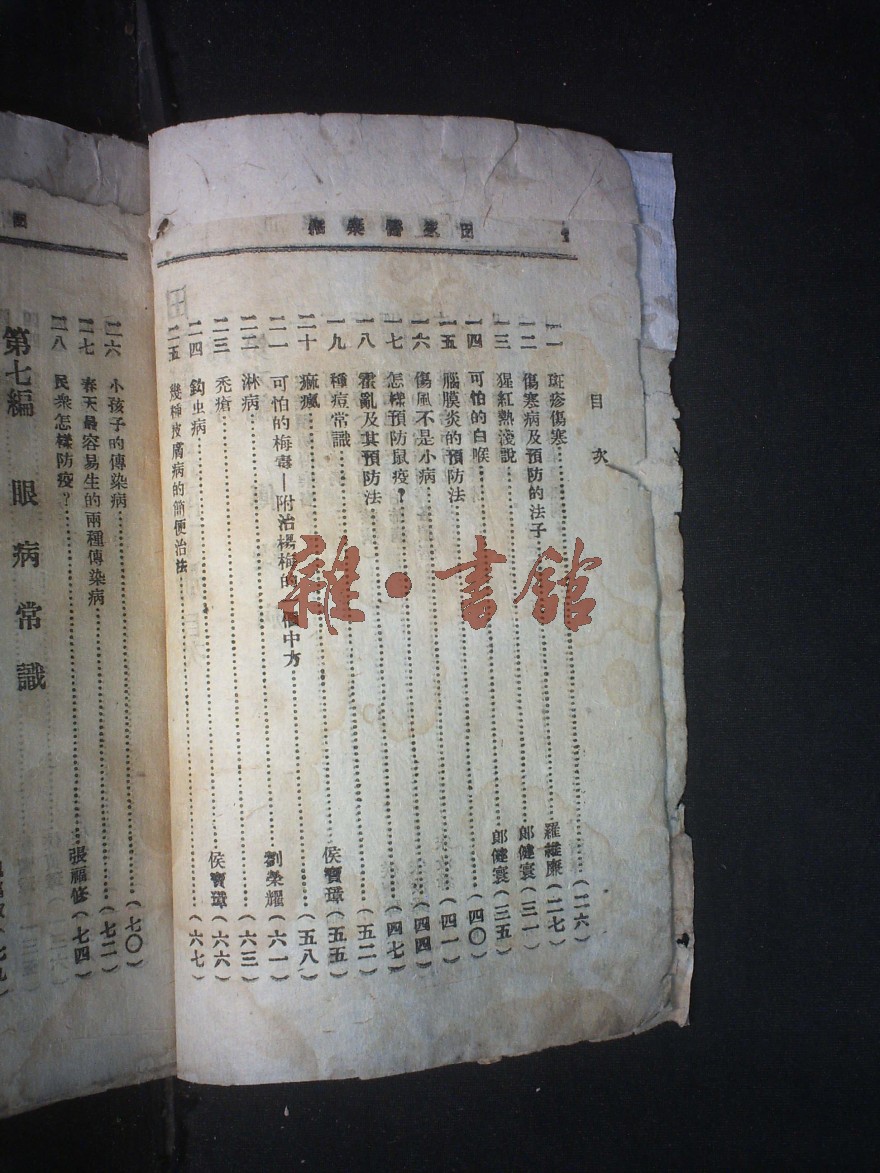 田家醫藥
目次
一一 斑疹傷寒……(二六)
一二 傷寒病及預防的法子……羅維廉(二七)
一三 猩紅熱淺說……郎健寰(三一)
一四 可怕的白喉……郎健寰(三五)
一五 腦膜炎的預防法……(四〇)
一六 傷風不是小病……(四一)
一七 怎樣預防鼠疫？……(四四)
一八 霍亂及其預防法……(四七)
一九 種痘常識……(五二)
二十 痲瘋……侯寶璋(五五)
二一 可怕的梅毒—附治楊梅的一個中方……(五八)
二二 淋病……劉榮耀(六一)
二三 禿瘡……(六三)
二四 鈎虫病……侯寶璋(六六)
二五 幾種皮膚病的簡便治法……(六七)
二六 小孩子的傳染病……(七〇)
二七 春天最容易生的兩種傳染病……(七二)
二八 民衆怎樣防疫？……張福修(七四)
第七編 眼病常識
雜·書館